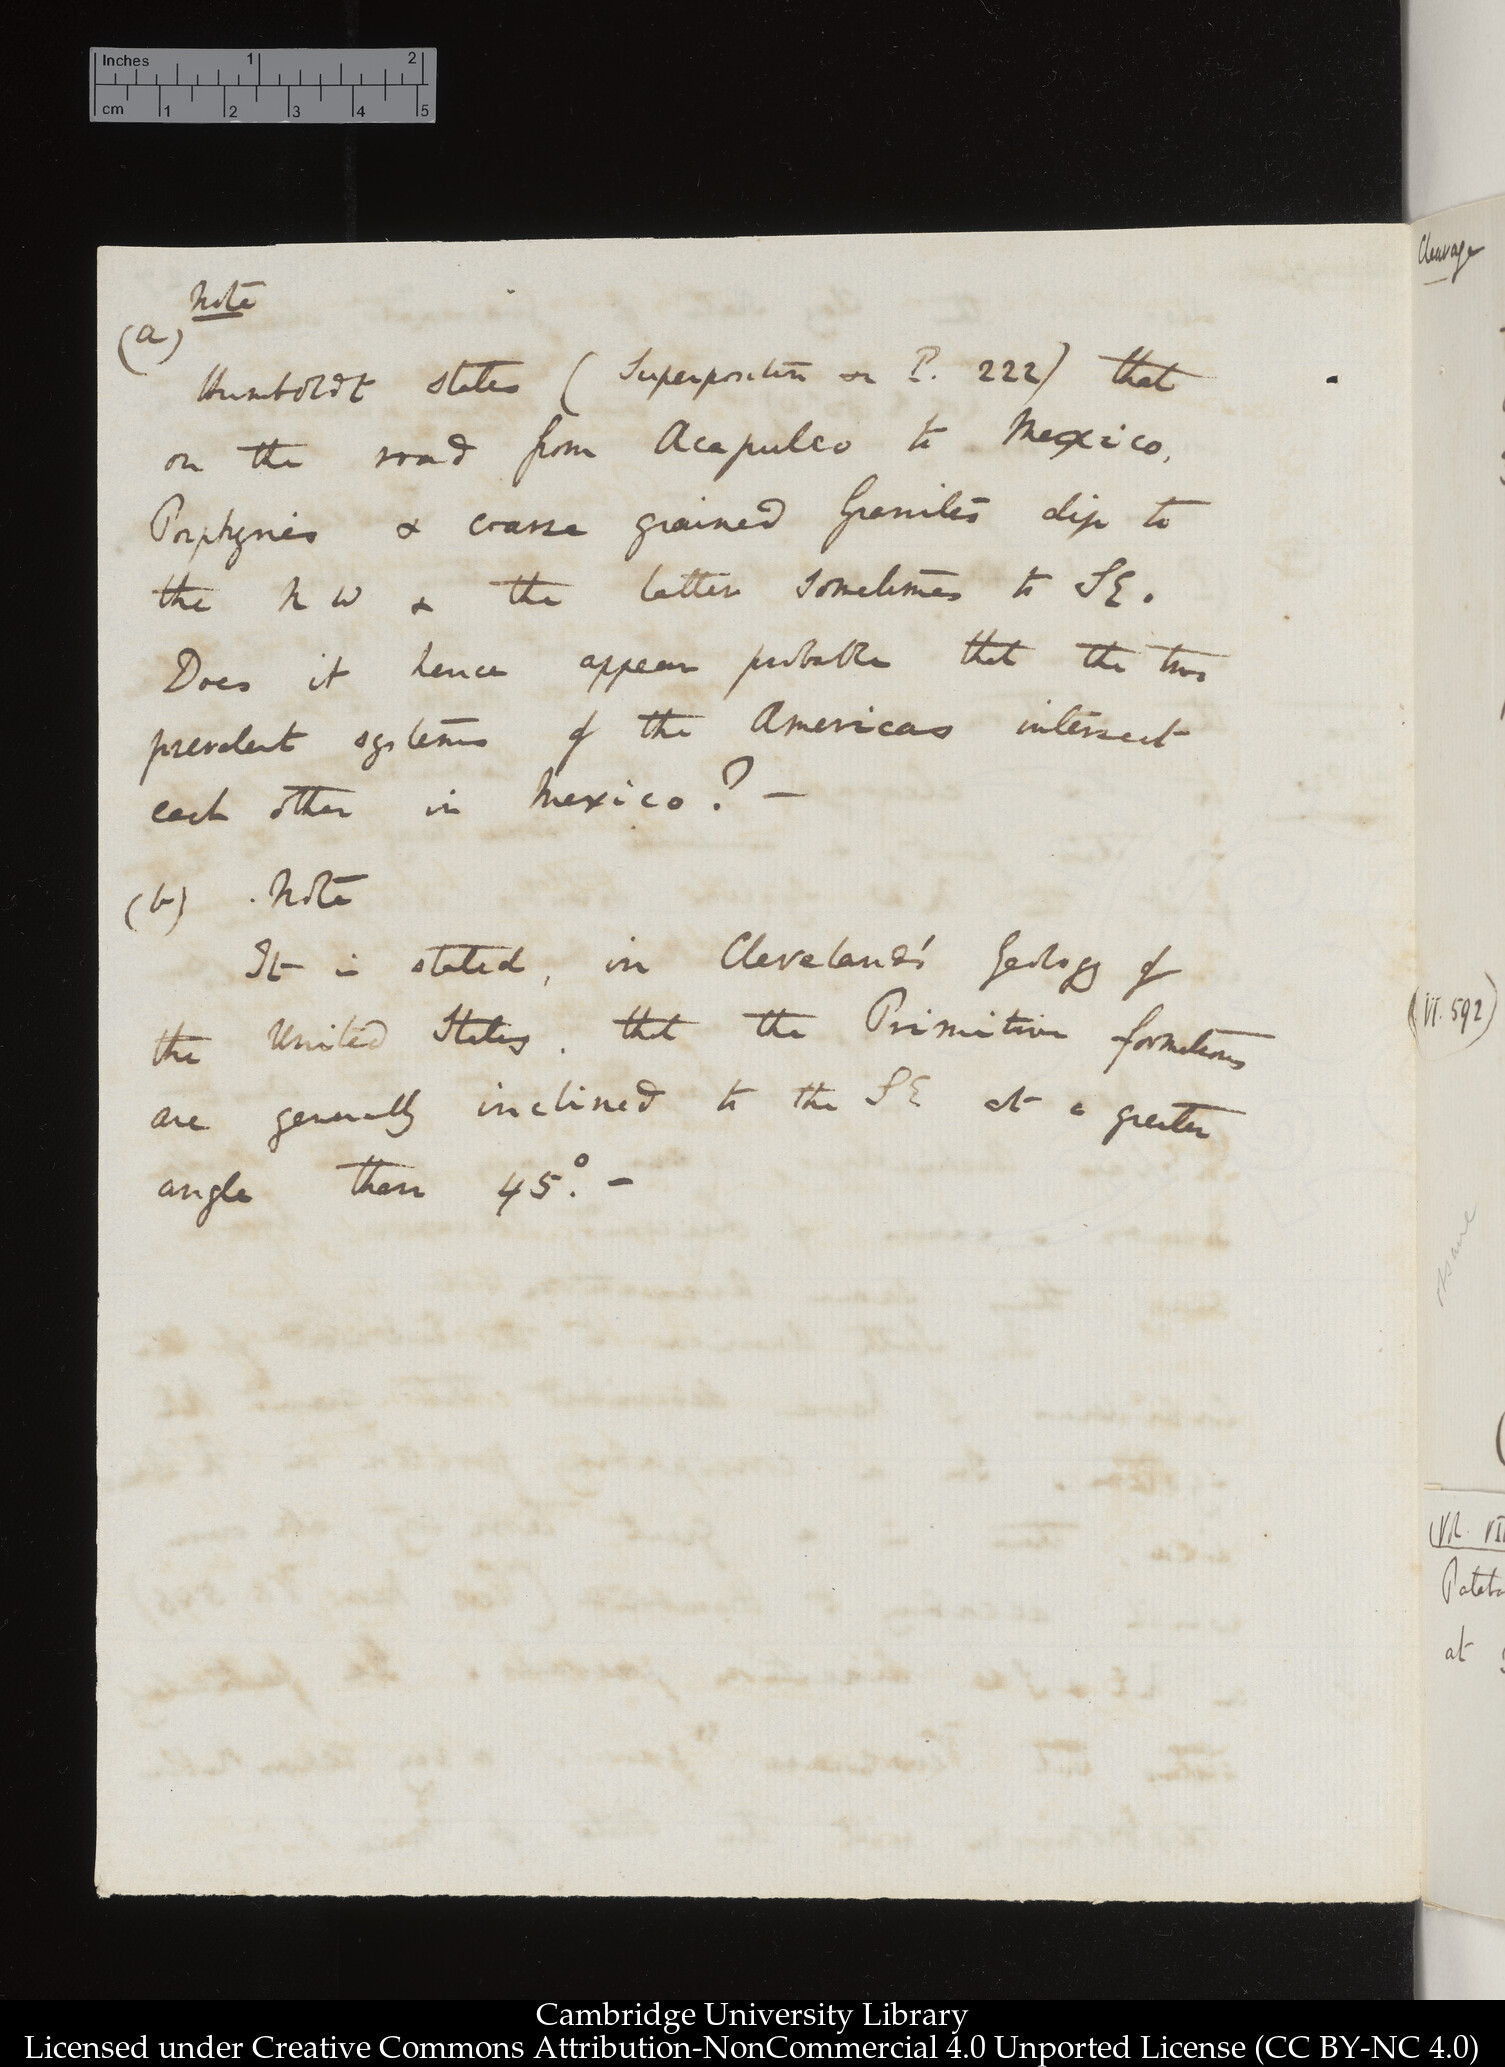 Inches 1 2
cm 1 2 3 4 5
Note
(a)
Humboldt states ( Superposition &c P. 222) that
on the road from Acapulco to Mexico,
Porphyries & coarse grained Granites dip to
the NW & the latter sometimes to SE.
Does it hence appear probable that the two
prevalent systems of the Americas intersect
each other in Mexico? —
(b) . Note
It is stated, in Cleveland's Geology of
the United States, that the Primitive formations
are generally inclined to the SE at a greater
angle than 45°. —
Cleavage
(VI. 592)
at
Cambridge University Library
Licensed under Creative Commons Attribution-NonCommercial 4.0 Unported License (CC BY-NC 4.0)